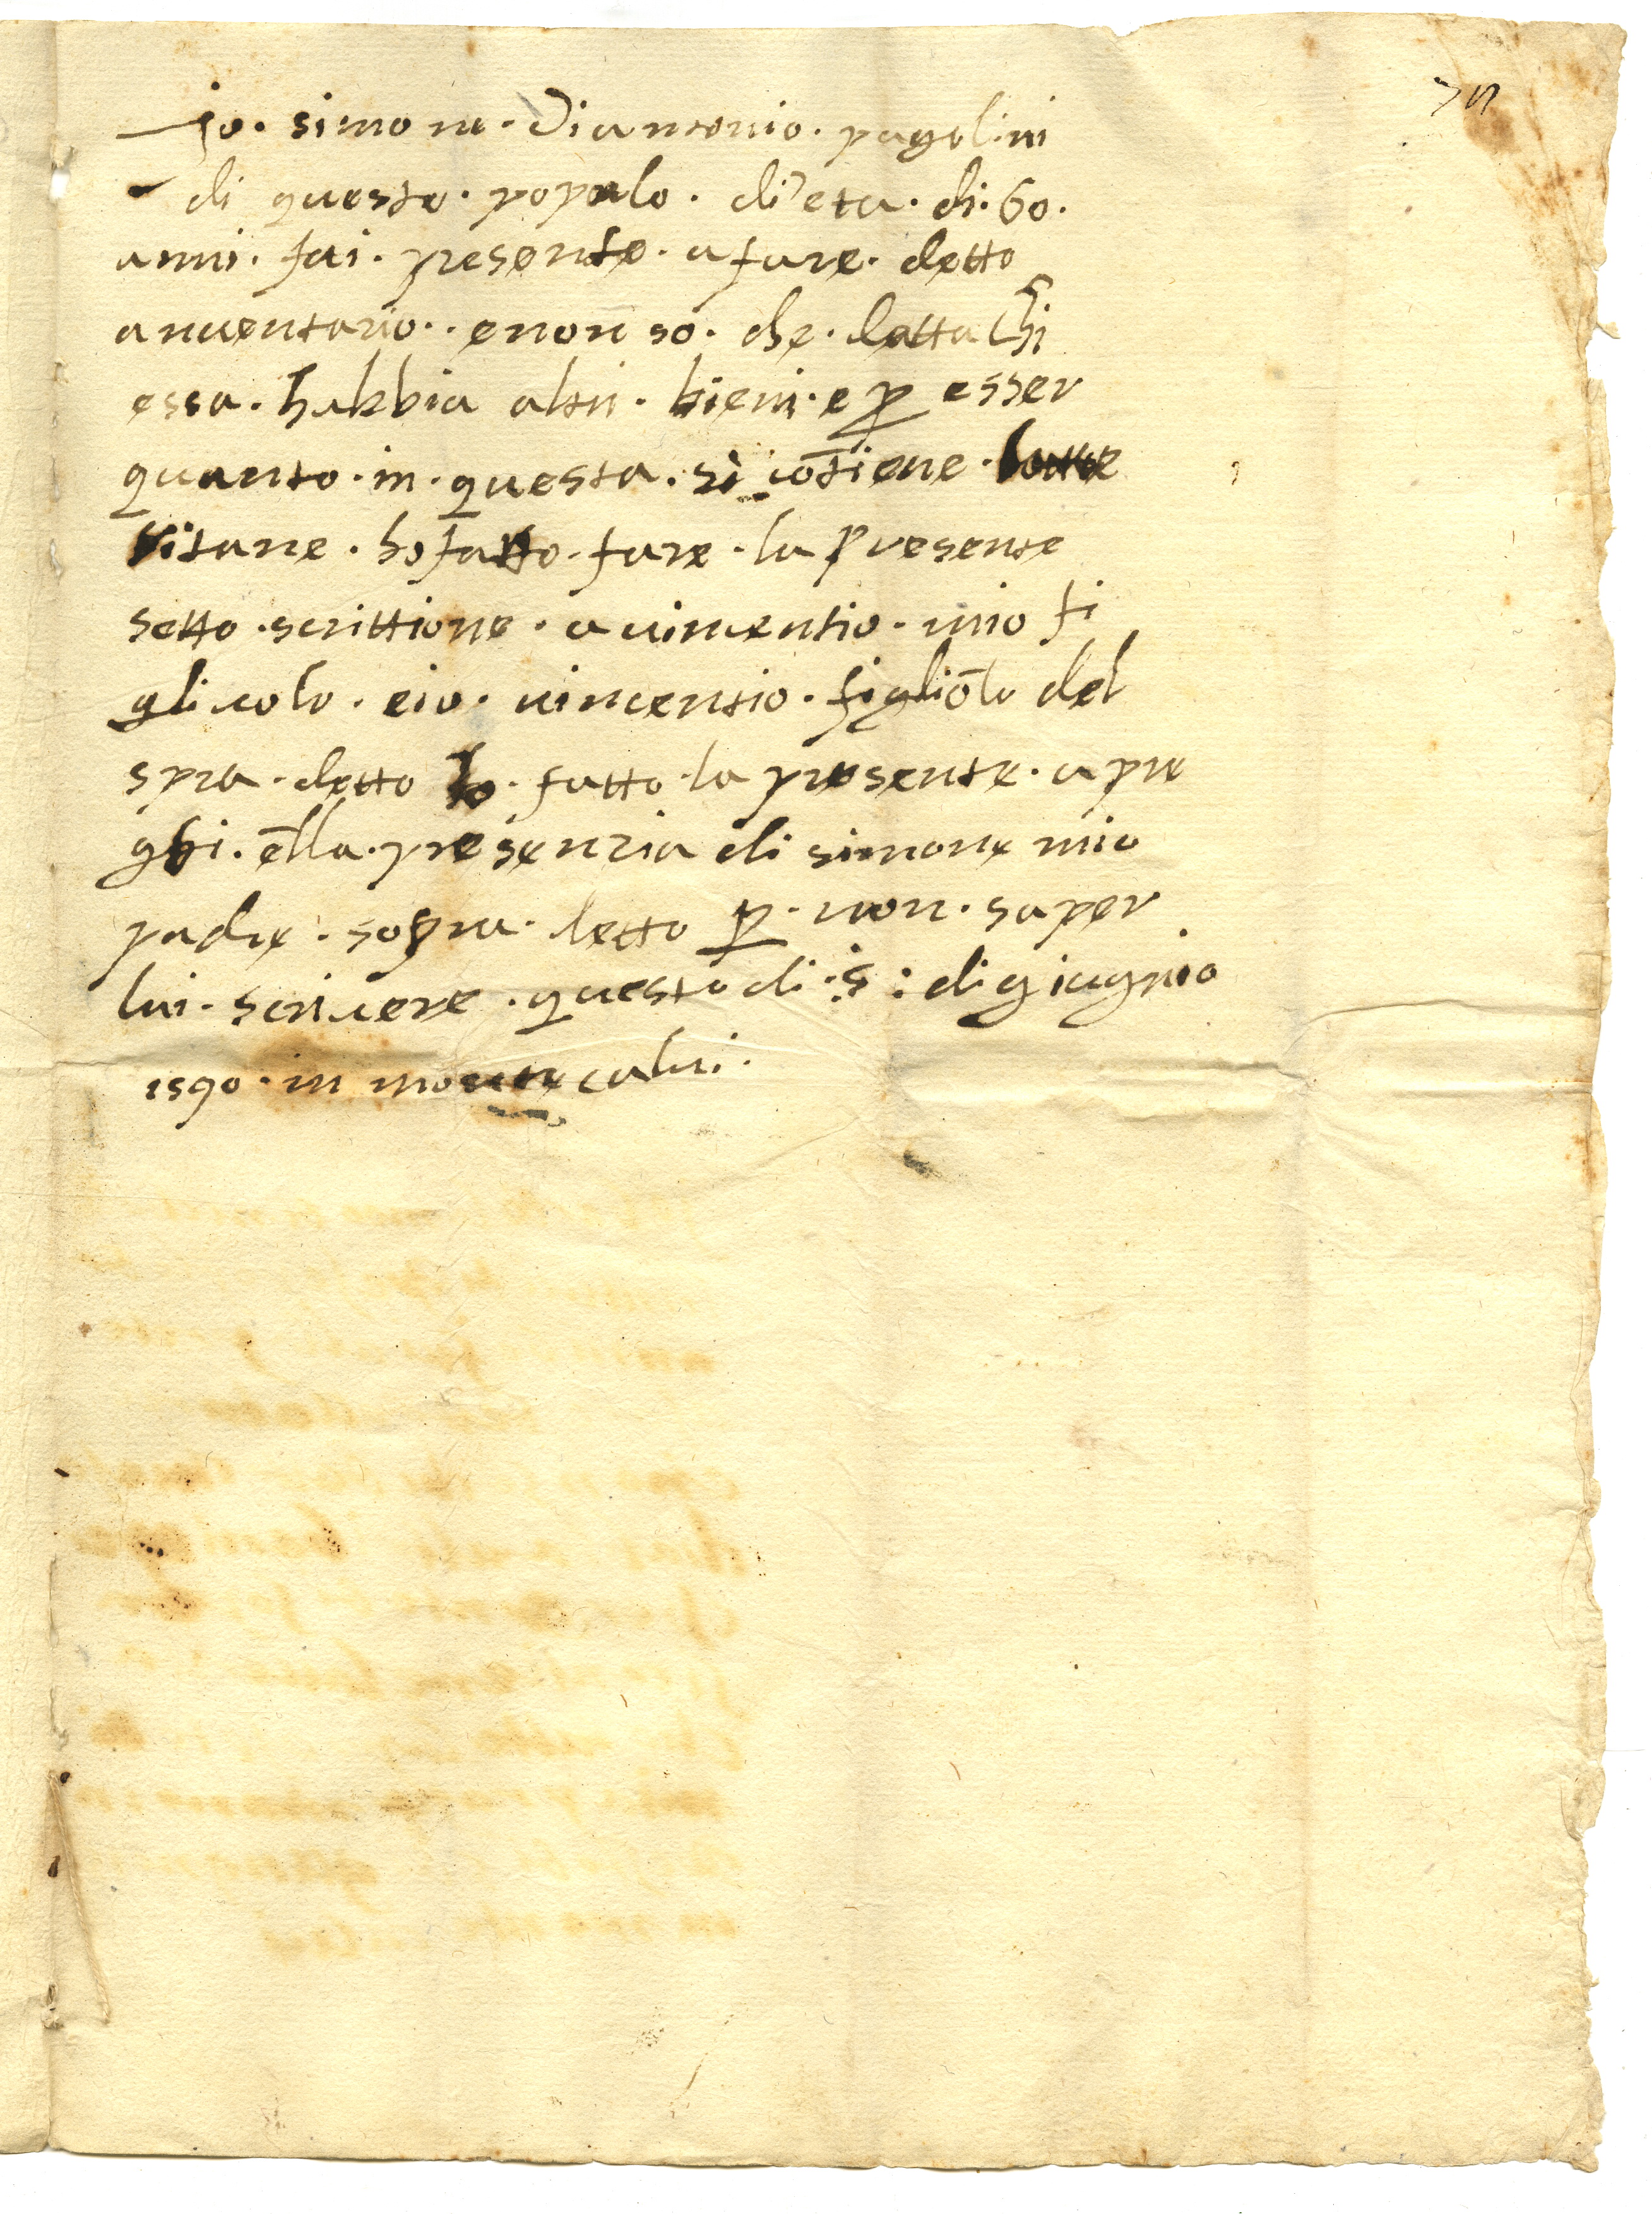 Jo. simone. Di antonio. pagolini
di questo. popolo. di eta. di. 60.
anni. fui. presente. a fare. detto
anuentario.. e non so. che. detta chi
essa. habbia altri. bieni. e p esser
quanto. in. questa. si cōtiene.
ritane. ho fatto. fare. la presente
sotto. scrittione. a uincentio. mio fi
gliuolo. e io. uincentio. figliōlo del
spra. detto ho. fatto. la presente. a pre
ghi. ella. presenzia di simone mio
padre. sopra. detto p. non. saper
lui. scriuere. questo di. 5: di giugnio
1590. in monte calui.